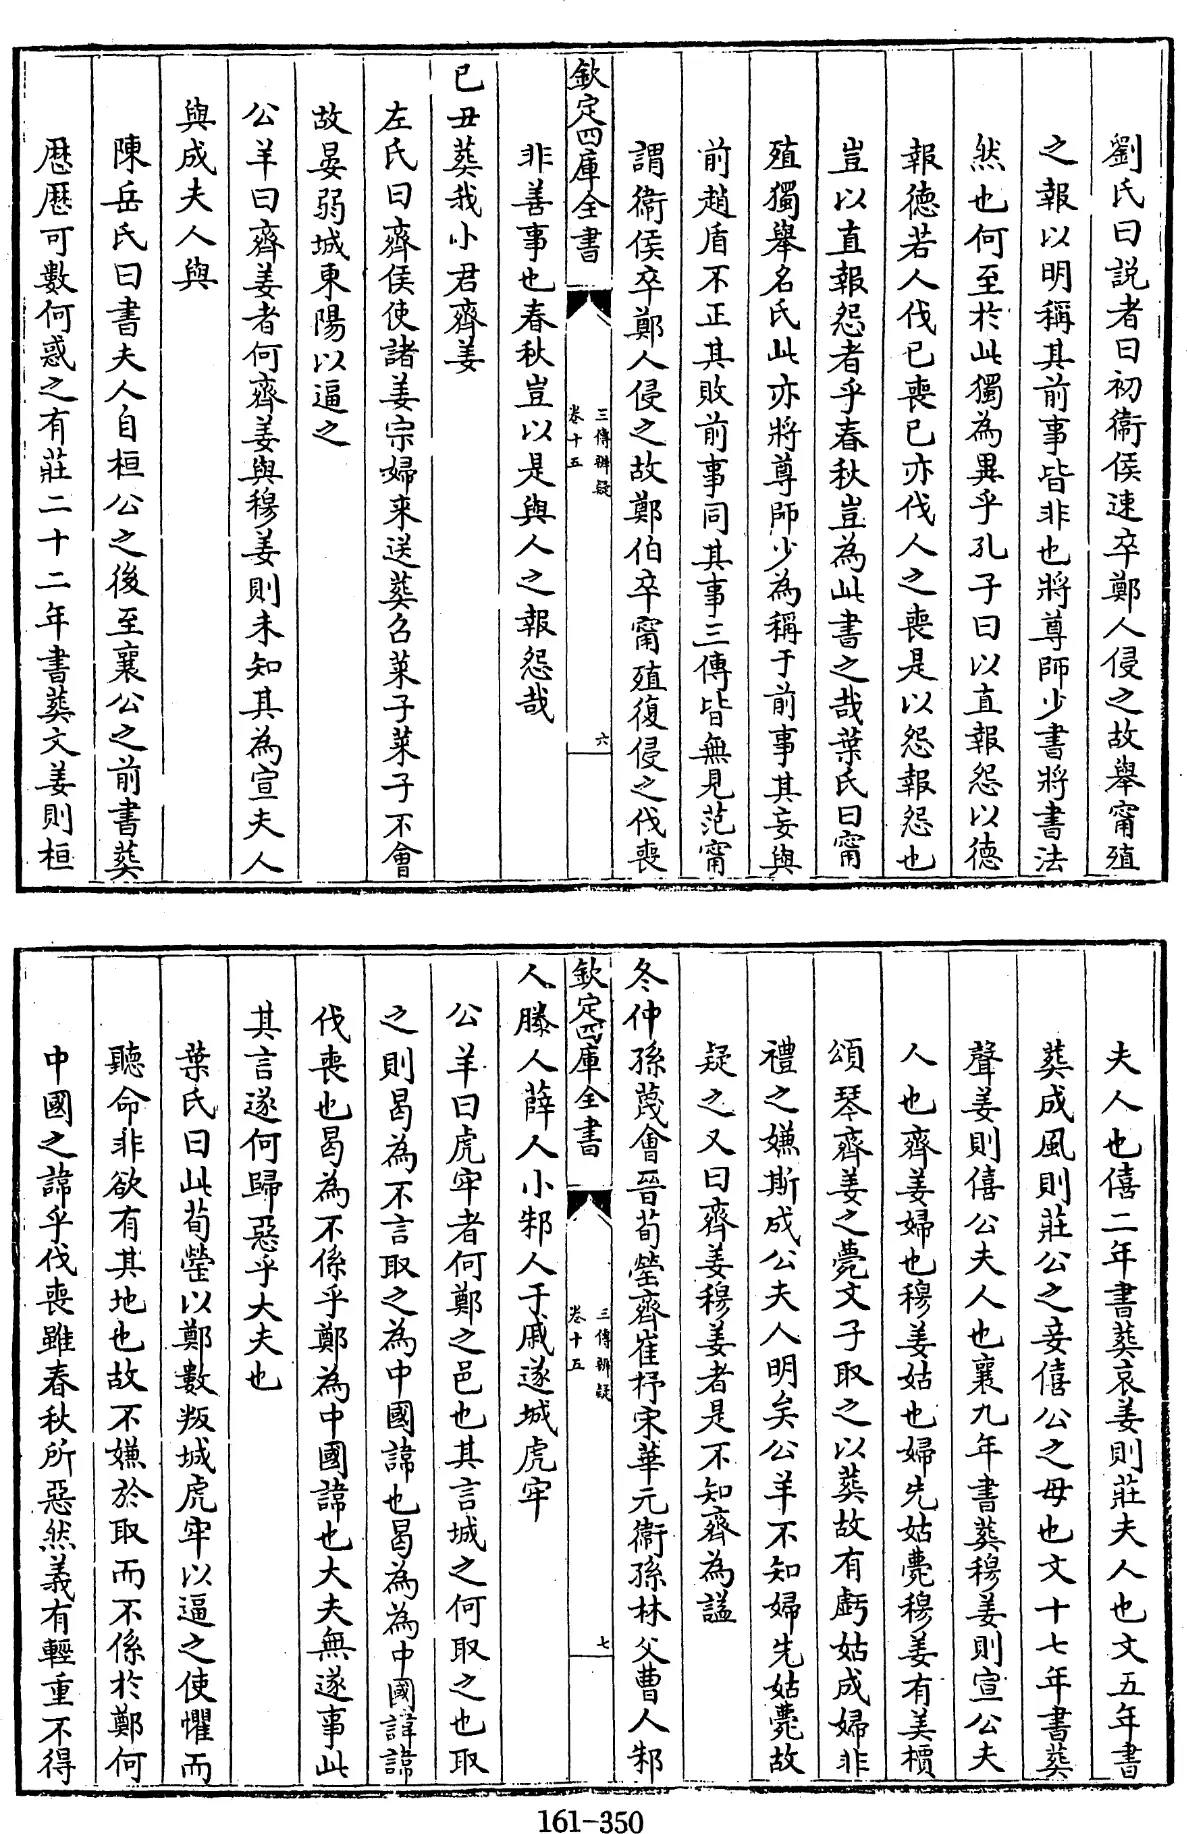 劉氏曰説者曰初衞侯速卒鄭人侵之故舉甯殖
之報以明稱其前事皆非也將尊師少書將書法
然也何至於此獨為異乎孔子曰以直報怨以德
報德若人伐已喪已亦伐人之喪是以怨報怨也
豈以直報怨者乎春秋豈為此書之哉葉氏曰甯
殖獨舉名氏此亦將尊師少為稱于前事其妄與
前趙盾不正其敗前事同其事三傳皆無見范甯
謂衞侯卒鄭人侵之故鄭伯卒甯殖復侵之伐喪
欽定四庫全書
三傳辨疑
卷十五
六
非善事也春秋豈以是與人之報怨哉
已丑葬我小君齊姜
左氏曰齊侯使諸姜宗婦来送葬召萊子萊子不會
故晏弱城東陽以逼之
公羊曰齊姜者何齊姜與穆姜則未知其為宣夫人
與成夫人與
陳岳氏曰書夫人自桓公之後至襄公之前書葬
歴歴可數何惑之有莊二十二年書葬文姜則桓
夫人也僖二年書葬哀姜則莊夫人也文五年書
葬成風則莊公之妾僖公之母也文十七年書葬
聲姜則僖公夫人也襄九年書葬穆姜則宣公夫
人也齊姜婦也穆姜姑也婦先姑薨穆姜有美檟
頌琴齊姜之薨文子取之以葬故有虧姑成婦非
禮之嫌斯成公夫人明矣公羊不知婦先姑薨故
疑之又曰齊姜穆姜者是不知齊為謚
冬仲孫蔑會晉荀罃齊崔杼宋華元衞孫林父曹人邾
欽定四庫全書
三傳辨疑
卷十五
七
人滕人薛人小邾人于戚遂城虎牢
公羊曰虎牢者何鄭之邑也其言城之何取之也取
之則曷為不言取之為中國諱也曷為為中國諱諱
伐喪也曷為不係乎鄭為中國諱也大夫無遂事此
其言遂何歸惡乎大夫也
葉氏曰此荀罃以鄭數叛城虎牢以逼之使懼而
聽命非欲有其地也故不嫌於取而不係於鄭何
中國之諱乎伐喪雖春秋所惡然義有輕重不得
161-350